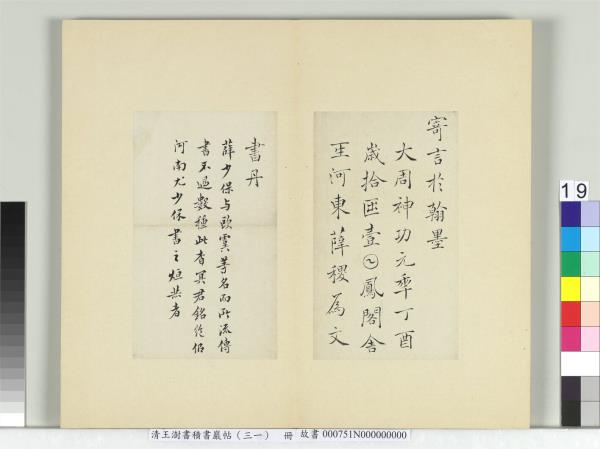 寄言於翰墨
大周神功元𠡦丁酉
歲拾𠥱壹𡆠鳳閣舍
𤯔河東薛稷為文
書丹
薛少保与歐虞等名而所流傳
書不過數種此杳冥君銘絶佀
河南尤少保書之烜赫者
19
清王澍書積書巖帖(三一) 冊 故書 000751N000000000